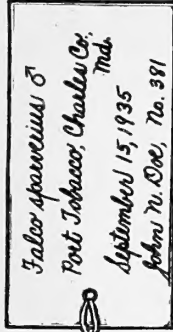 Falco sparverius ♂
Port Tobacco, Charles Co.,
Md.
September 15, 1935
John N. Doe, No. 381